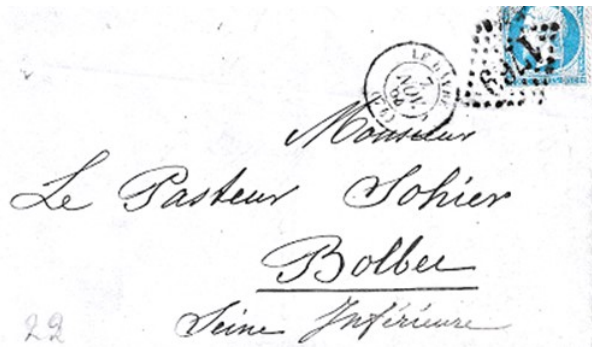 LE HAVRE
2
NOV.
64
(74)
1769
Monsieur
Le Pasteur Sohier
Bolbec
Seine Inférieure
22